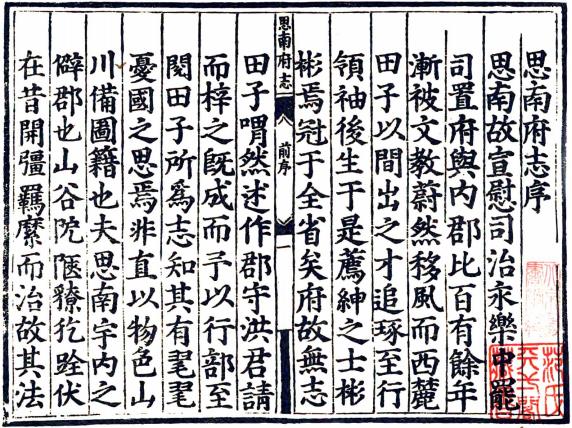 思南府志序
思南故宣慰司治永樂中罷
司置府與內郡比百有餘年
漸被文教蔚然移風而西麓
田子以間出之才追琢至行
領袖後生于是薦紳之士彬
彬焉冠于全省矣府故無志
思南府志
前序
一
田子喟然述作郡守洪君請
而梓之既成而予以行部至
閱田子所爲志知其有毣毣
憂國之思焉非直以物色山
川備圖籍也夫思南宇內之
僻郡也山谷阨陿獠犵跧伏
在昔開彊羈縻而治故其法